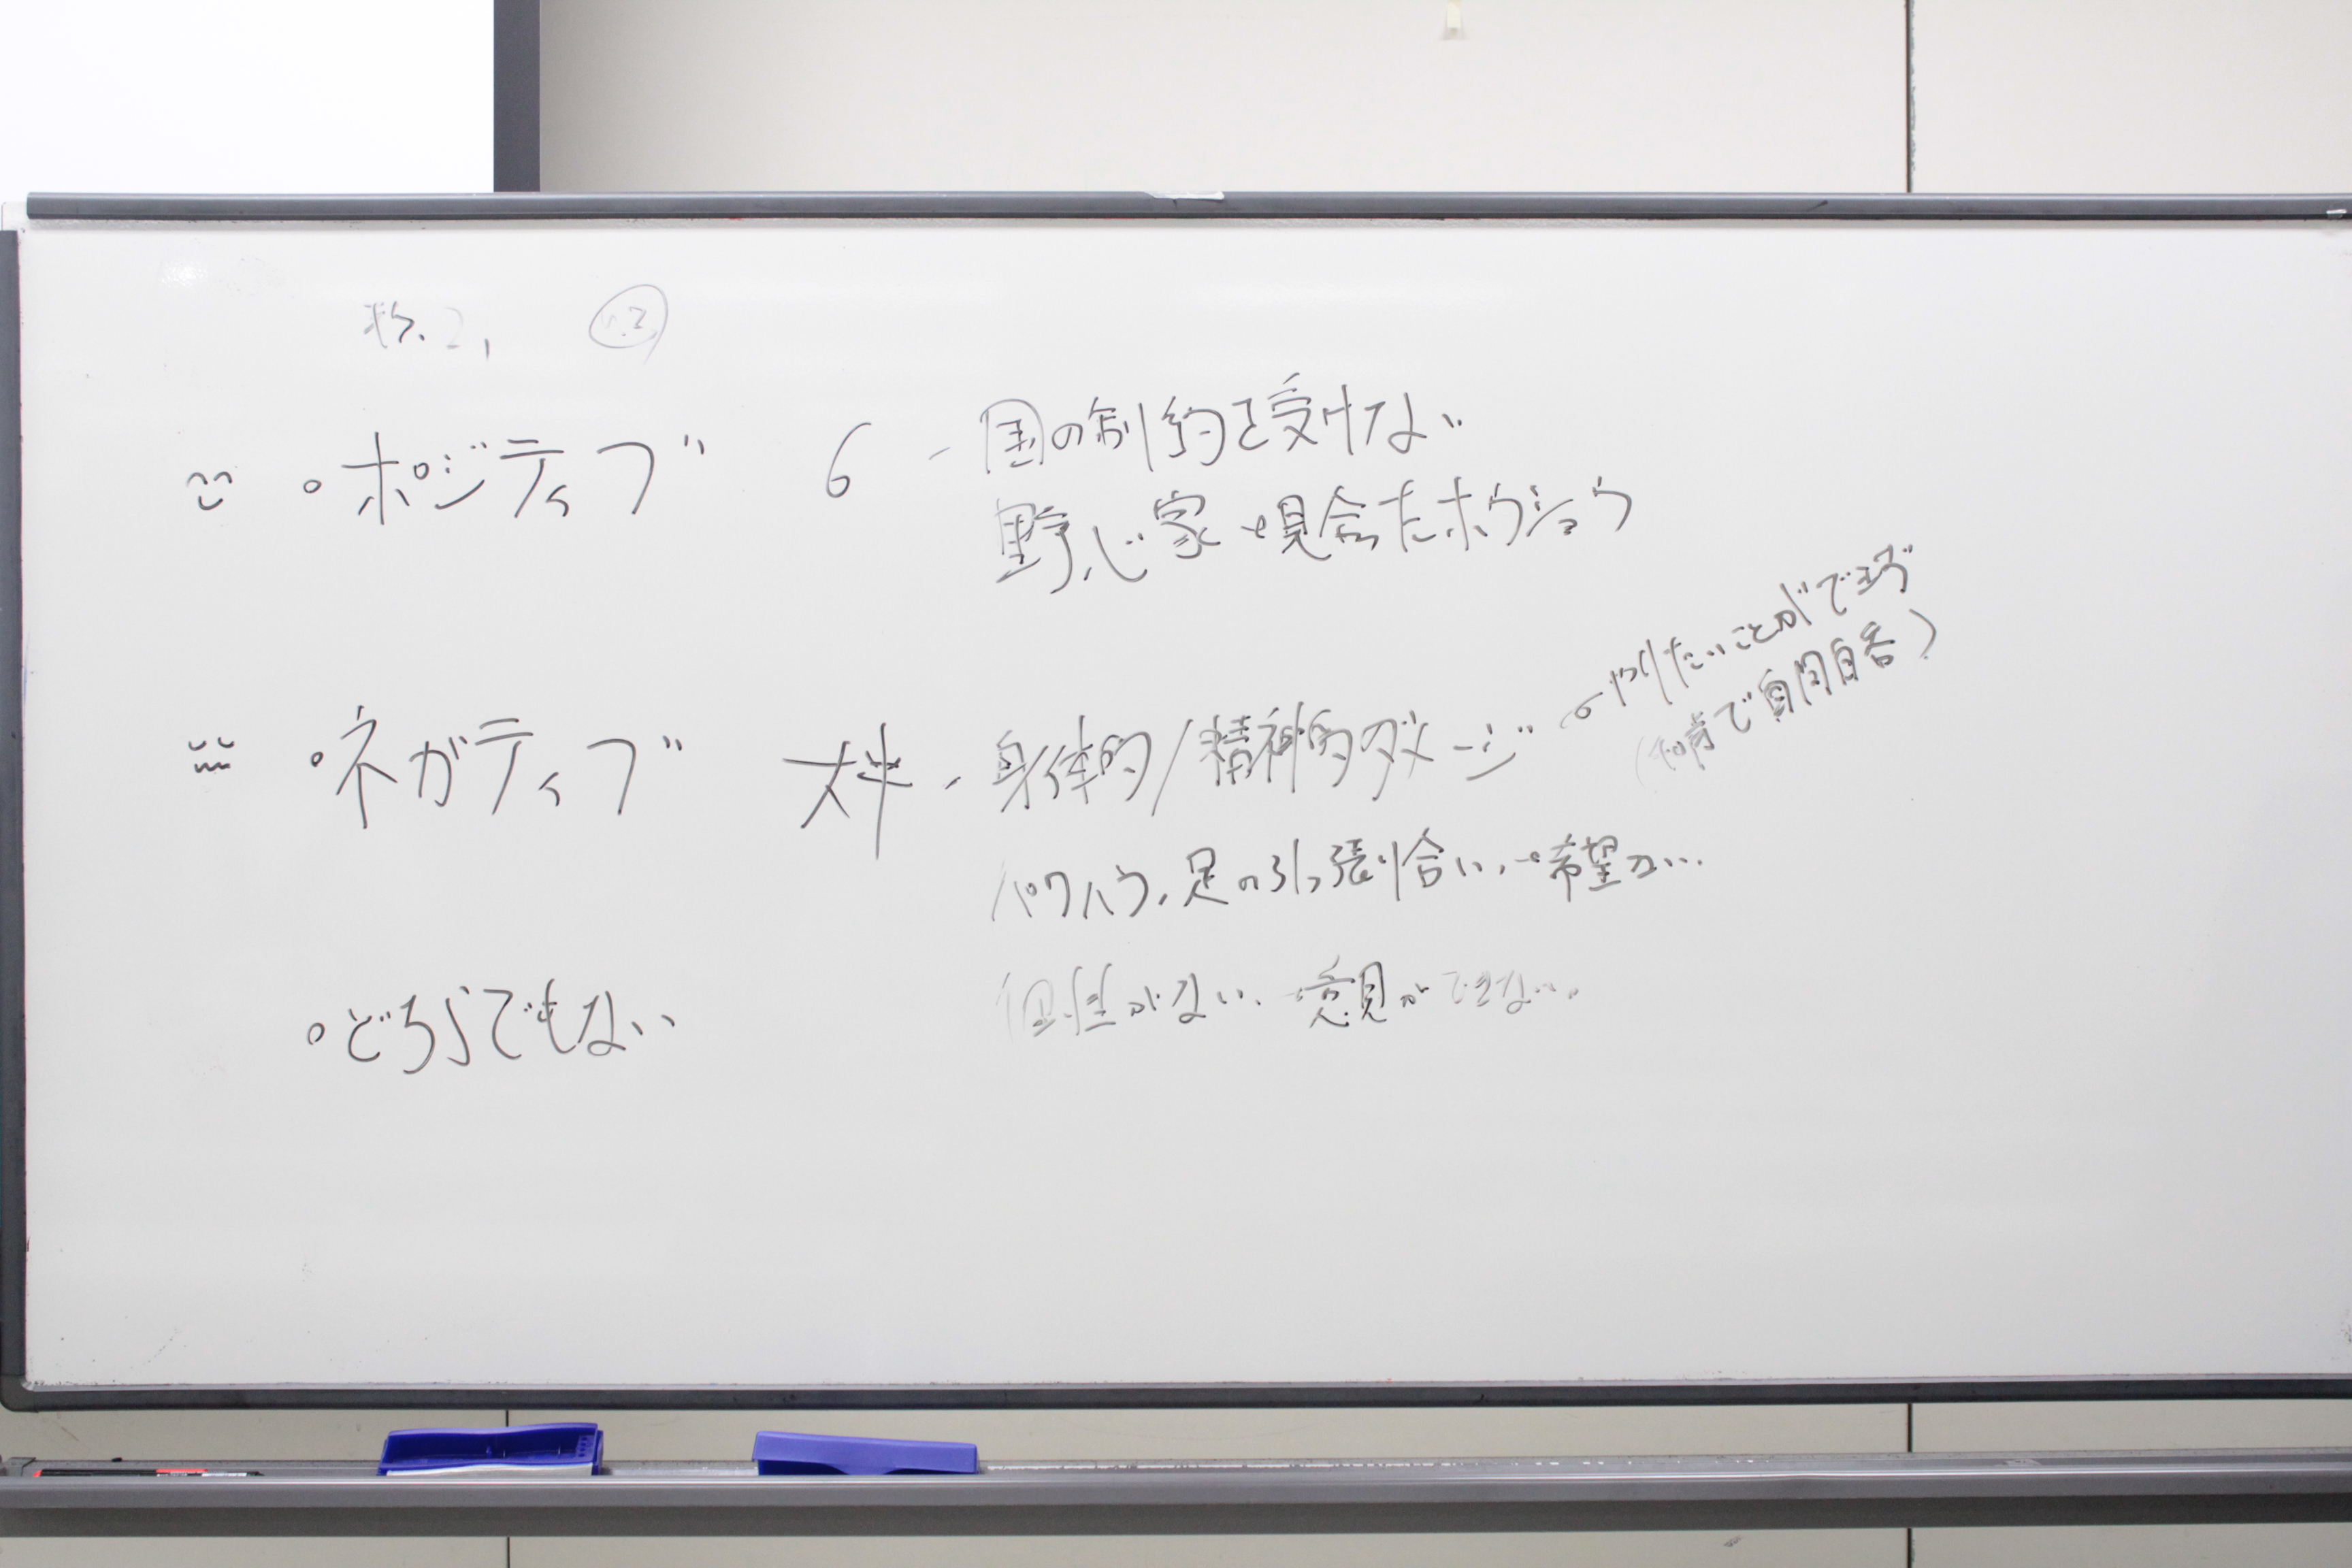 ・ポジティブ 6 - 国の制約を受けない
野心家→見合たホウショウ
・ネガティブ 大半 - 身体的/精神的ダメージ
やりたいことができず
で自問自答)
パワハラ、足の引っ張り合い、→希望ない…
・どちらでもない
個性がない、→意見ができない。